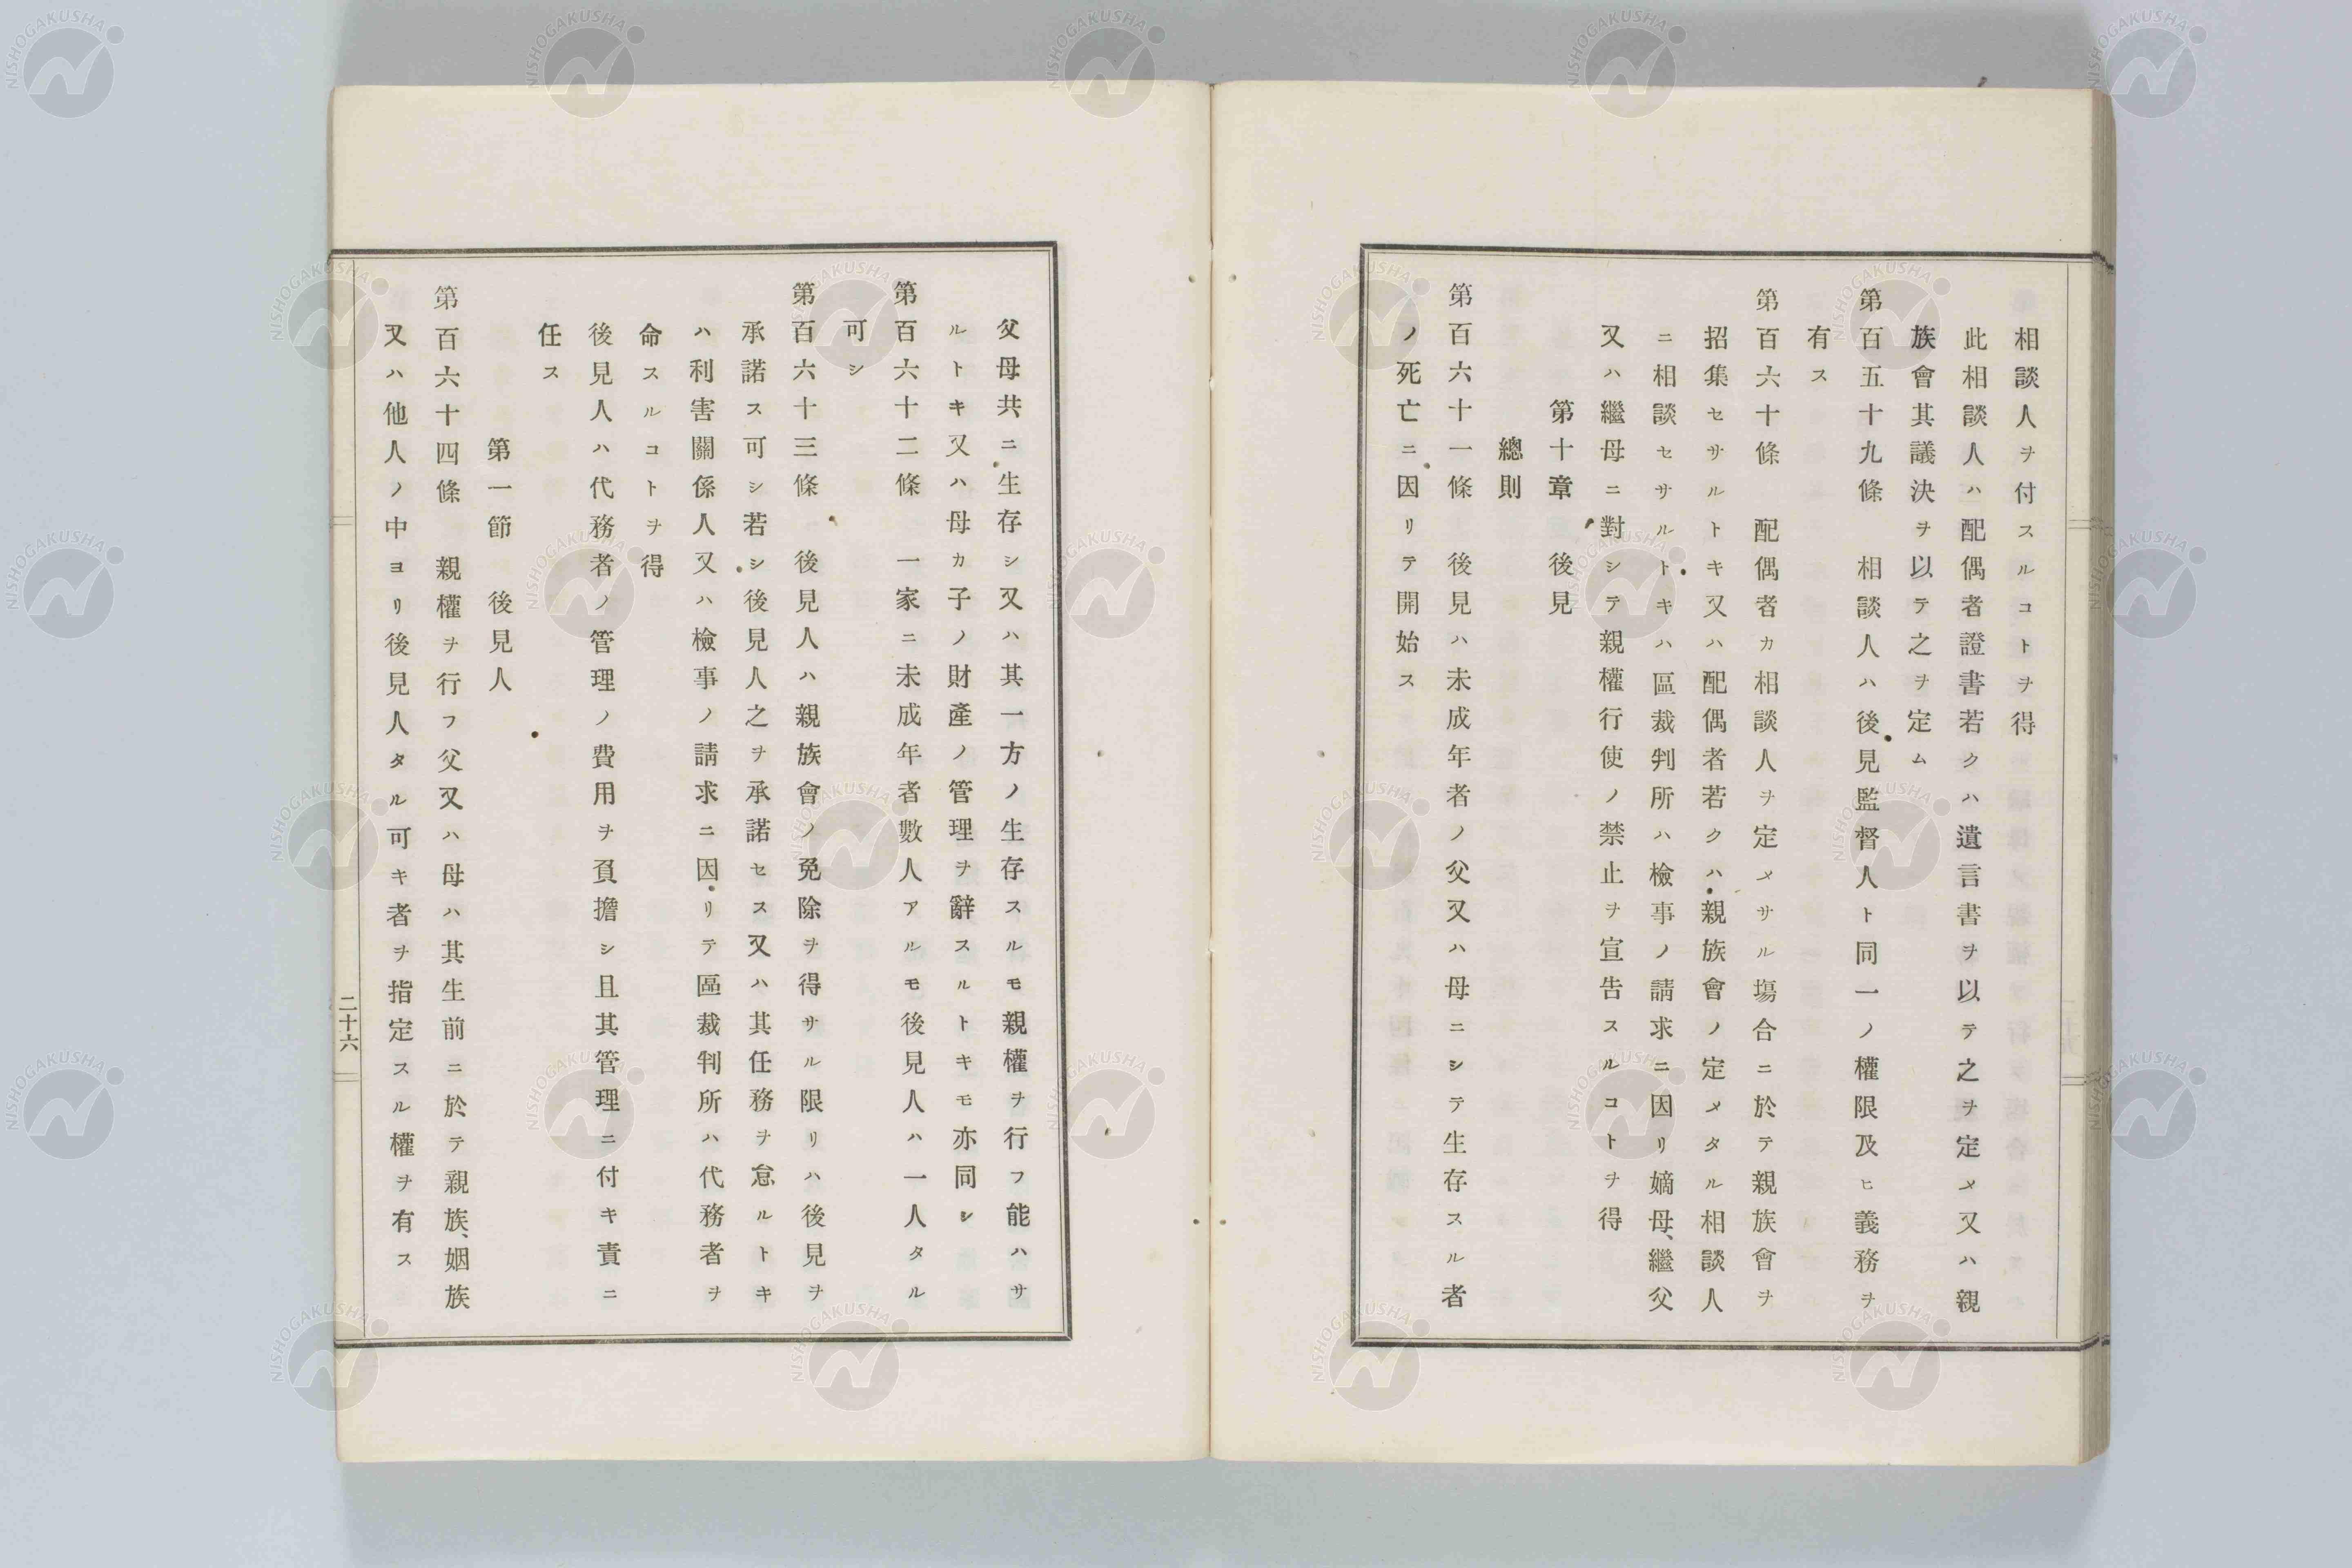 相談人ヲ付スルコトヲ得
此相談人ハ配偶者證書若クハ遺言書ヲ以テ之ヲ定メ又ハ親
族會其議決ヲ以テ之ヲ定ム
第百五十九條　相談人ハ後見監督人ト同一ノ權限及ヒ義務ヲ
有ス
第百六十條　配偶者カ相談人ヲ定メサル塲合ニ於テ親族會ヲ
招集セサルトキ又ハ配偶者若クハ親族會ノ定メタル相談人
ニ相談セサルトキハ區裁判所ハ檢事ノ請求ニ因リ嫡母、繼父
又ハ繼母ニ對シテ親權行使ノ禁止ヲ宣告スルコトヲ得
第十章　後見
總則
第百六十一條　後見ハ未成年者ノ父又ハ母ニシテ生存スル者
ノ死亡ニ因リテ開始ス
父母共ニ生存シ又ハ其一方ノ生存スルモ親權ヲ行フ能ハサ
ルトキ又ハ母カ子ノ財產ノ管理ヲ辭スルトキモ亦同シ
第百六十二條　一家ニ未成年者數人アルモ後見人ハ一人タル
可シ
第百六十三條　後見人ハ親族會ノ免除ヲ得サル限リハ後見ヲ
承諾ス可シ若シ後見人之ヲ承諾セス又ハ其任務ヲ怠ルトキ
ハ利害關係人又ハ檢事ノ請求ニ因リテ區裁判所ハ代務者ヲ
命スルコトヲ得
後見人ハ代務者ノ管理ノ費用ヲ負擔シ且其管理ニ付キ責ニ
任ス
第一節　後見人
第百六十四條　親權ヲ行フ父又ハ母ハ其生前ニ於テ親族、姻族
又ハ他人ノ中ヨリ後見人タル可キ者ヲ指定スル權ヲ有ス
二十六
NISHOGAKUSHA